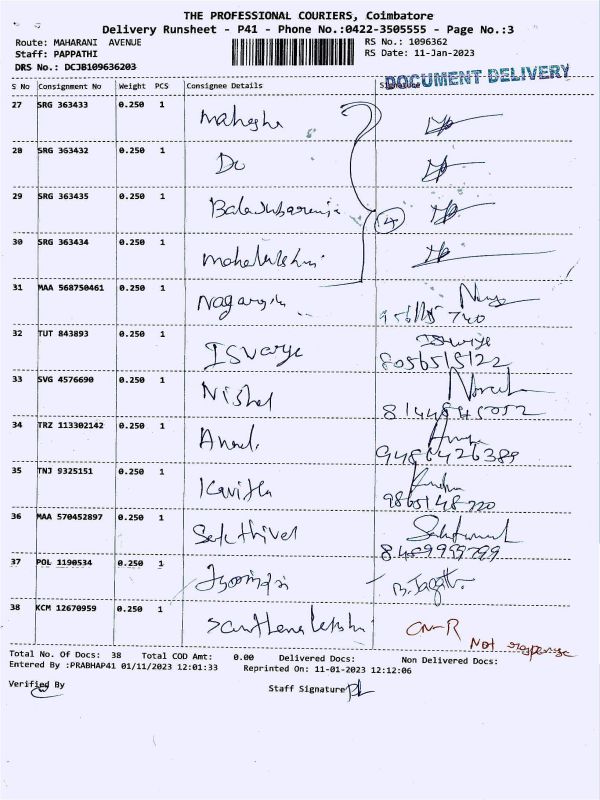 THE PROFESSIONAL COURIERS, Coimbatore
Delivery Runsheet - P41 - Phone No.:0422-3505555 - Page No.:3
Route: MAHARANI AVENUE RS No.: 1096362
Staff: PAPPATHI RS Date: 11-Jan-2023
DRS No.: DCJB109636203
DOCUMENT DELIVERY
S No Consignment No Weight PCS Consignee Details Signature
27 SRG 363433 0.250 1 Mahesha
28 SRG 363432 0.250 1 Do
29 SRG 363435 0.250 1 4
30 SRG 363434 0.250 1 Mahalakshmi
31 MAA 568750461 0.250 1
32 TUT 843893 0.250 1 ISwarya Iswarya
8056515122
33 SVG 4576690 0.250 1 Nishal
34 TRZ 113302142 0.250 1 Anand
9486426389
35 TNJ 9325151 0.250 1 Kavitha
9865148720
36 MAA 570452897 0.250 1 Sakthivel
8489999799
37 POL 1190534 0.250 1
38 KCM 12670959 0.250 1 Santhanalakshmi CN-R
Not response
Total No. Of Docs: 38 Total COD Amt: 0.00 Delivered Docs: Non Delivered Docs:
Entered By :PRABHAP41 01/11/2023 12:01:33 Reprinted On: 11-01-2023 12:12:06
Verified By Staff Signature